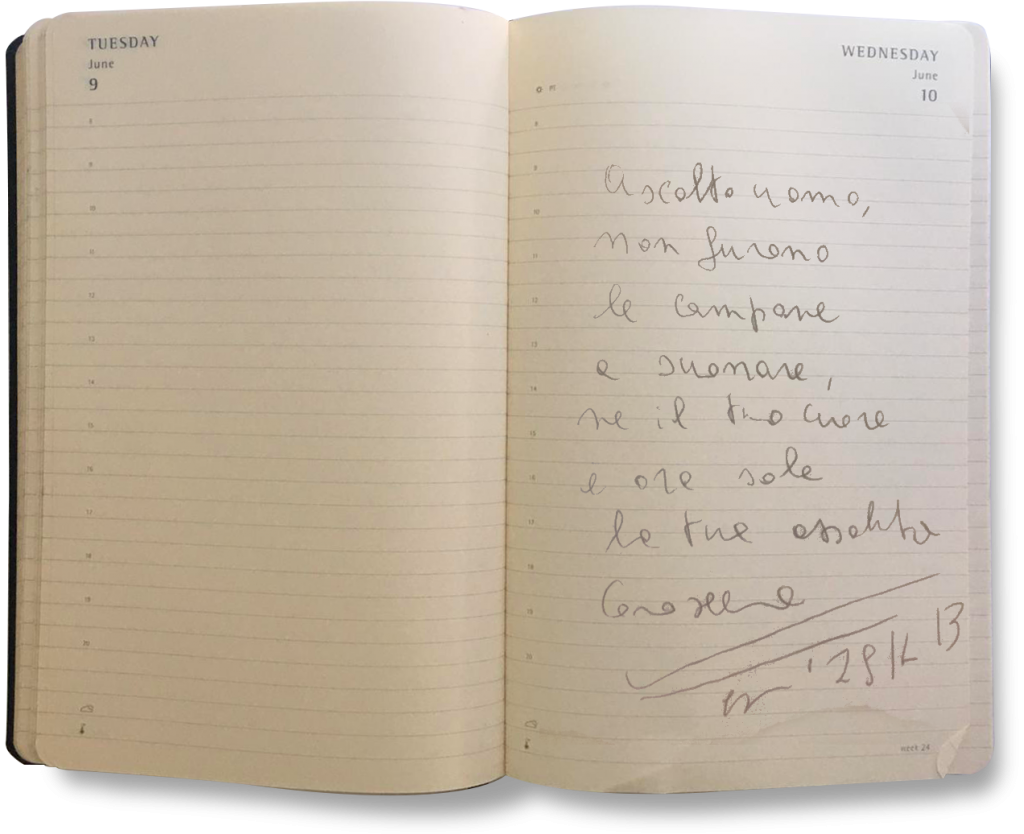 TUESDAY
June
9
8
9
10
11
12
13
14
15
16
17
18
19
20
WEDNESDAY
June
10
8
9
Ascolta uomo,
10
non furono
11
le campane
12
13
a suonare,
14
ne il tuo cuore
15
16
e ora sola
17
la tua assoluta
18
19
20
13
week 24